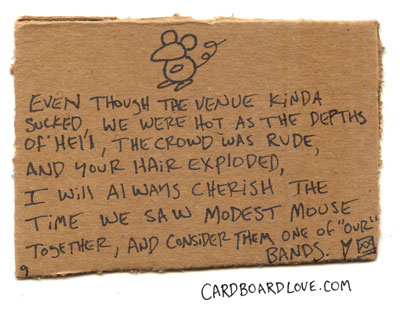 EVEN THOUGH THE VENUE KINDA
SUCKED, WE WERE HOT AS THE DEPTHS
OF HEll, THE CROWD WAS RUDE,
AND YOUR HAIR EXPLODED,
I Will AlWAYS CHERISH THE
TiME WE SAW MODEST MOUSE
TOGETHER, AND CONSIDER THEM ONE OF "OUR"
BANDS.
9
CARDBOARDLOVE.COM